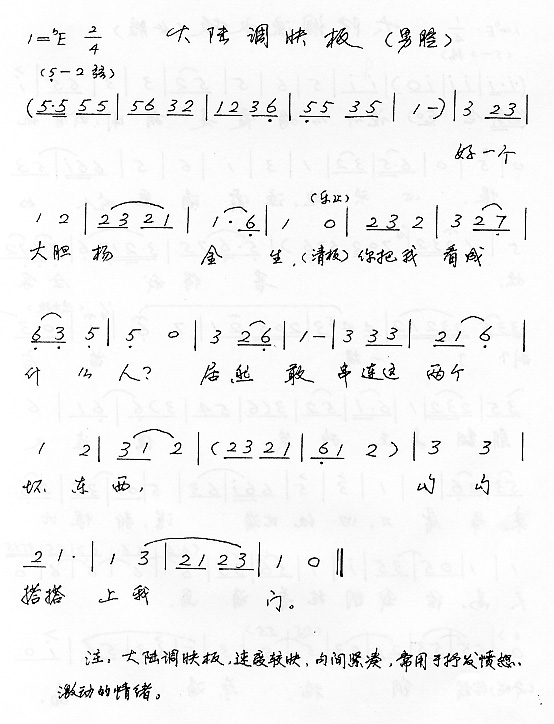 1=ᵇE 2/4 大陆调快板（男腔）
(5-2弦)
(5·5 55 | 56 32 | 12 36 | 55 35 | 1 -) | 3 23 |
好一个
(乐止)
1 2 | 23 21 | 1·6 | 1 0 | 23 2 | 3 27 |
大胆 杨 金 生，(清板) 你把我 看成
6 3 5 | 5 0 | 3 26 | 1 - | 3 33 | 21 6 |
什么人？ 居然 敢 串连这 两个
1 2 | 31 2 | (23 21 | 61 2) | 3 3 |
坏 东西， 勾 勾
21· | 1 3 | 21 23 | 1 0 ‖
搭搭 上我 门。
注：大陆调快板，速度较快，内间紧凑，常用于抒发愤怒、
激动的情绪。